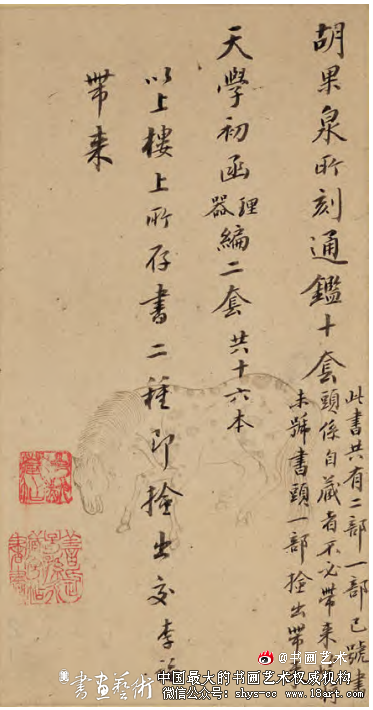 胡果泉所刻通鑑十套
此書共有二部一部已號書
頭係自藏者不必帶来
未號書頭一部撿出帶
天學初函理器編二套共十六本
以上樓上所存書二種即撿出交李
帶来
@书画艺术
書画藝術
中国最大的书画艺术权威机构
微信公众号: shys-cc www.18art.com